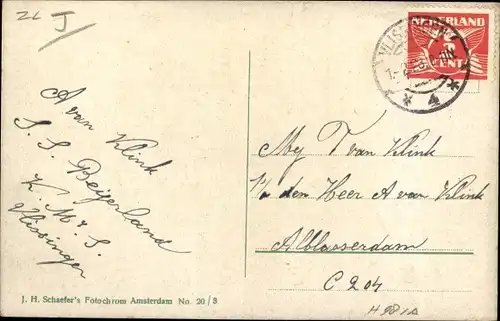 ZL J
NEDERLAND
CENT
VLISSINGEN
4
A van Klink
S. S. Beijerland
K. M. S.
Vlissingen
Mej T van Klink
p/a den Heer A van Klink
Alblasserdam
C 204
H 981A
J. H. Schaefer's Fotochrom Amsterdam No. 20/8